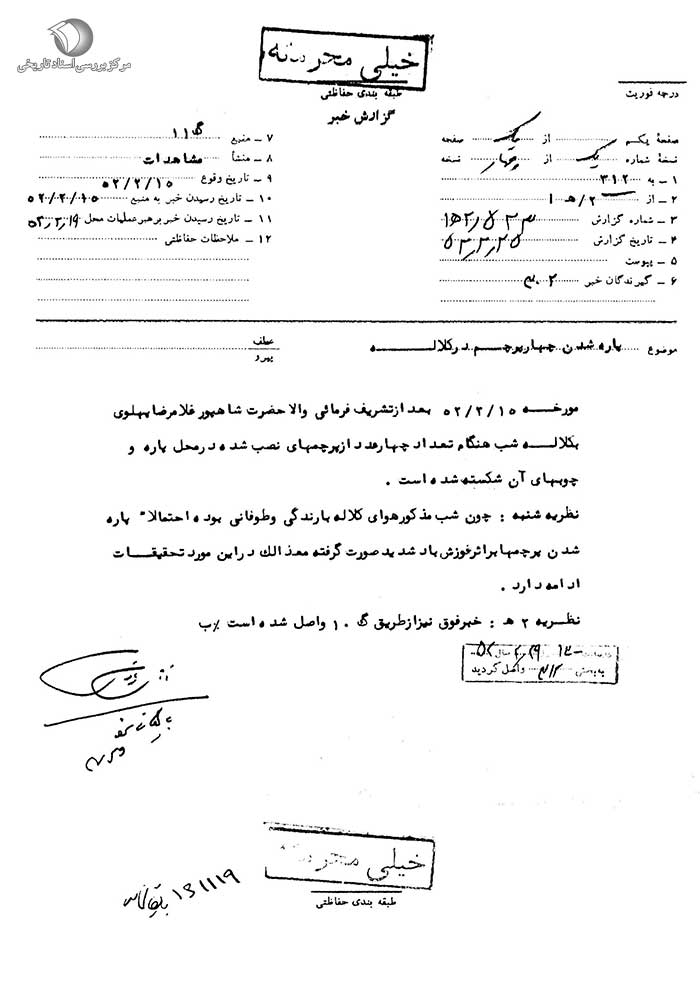 مرکز بررسی اسناد تاریخی
خیلی محرمانه
طبقه بندی حفاظتی
گزارش خبر
درجه فوریت
صفحهٔ یکم از یک صفحه
نسخهٔ شماره یک از چهار نسخه
۱ – به ۳۱۲
۲ – از ۲/هـ ۱
۳ – شماره گزارش
۴ – تاریخ گزارش ۵۲,۲,۲۵
۵ – پیوست
۶ – گیرندگان خبر ۳۰۲
۷ – منبع گ ۱۱
۸ – منشأ مشاهدات
۹ – تاریخ وقوع ۵۲/۲/۱۵
۱۰ – تاریخ رسیدن خبر به منبع ۵۲۰/۲۰/۰۱۵
۱۱ – تاریخ رسیدن خبر برهبر عملیات محل ۵۲,۲,۱۹
۱۲ – ملاحظات حفاظتی
موضوع پاره شدن چهار پرچم در کلاله
عطف
پیرو
مورخه ۵۲/۲/۱۵ بعد از تشریف فرمائی والا حضرت شاهپور غلامرضا پهلوی
بکلاله شب هنگام تعداد چهار عدد از پرچمهای نصب شده در محل پاره و
چوبهای آن شکسته شده است .
نظریه شنبه : چون شب مذکور هوای کلاله بارندگی و طوفانی بوده احتمالاً پاره
شدن پرچمها بر اثر فوزش باد شدید صورت گرفته معذالك در این مورد تحقیقات
ادامه دارد .
نظریه ۲ هـ : خبر فوق نیز از طریق گ ۱۰ واصل شده است ٪ب
به بخش ۳۱۲ واصل گردید
خیلی محرمانه
طبقه بندی حفاظتی
بایگانی شود
۱۳۱۱۱۹